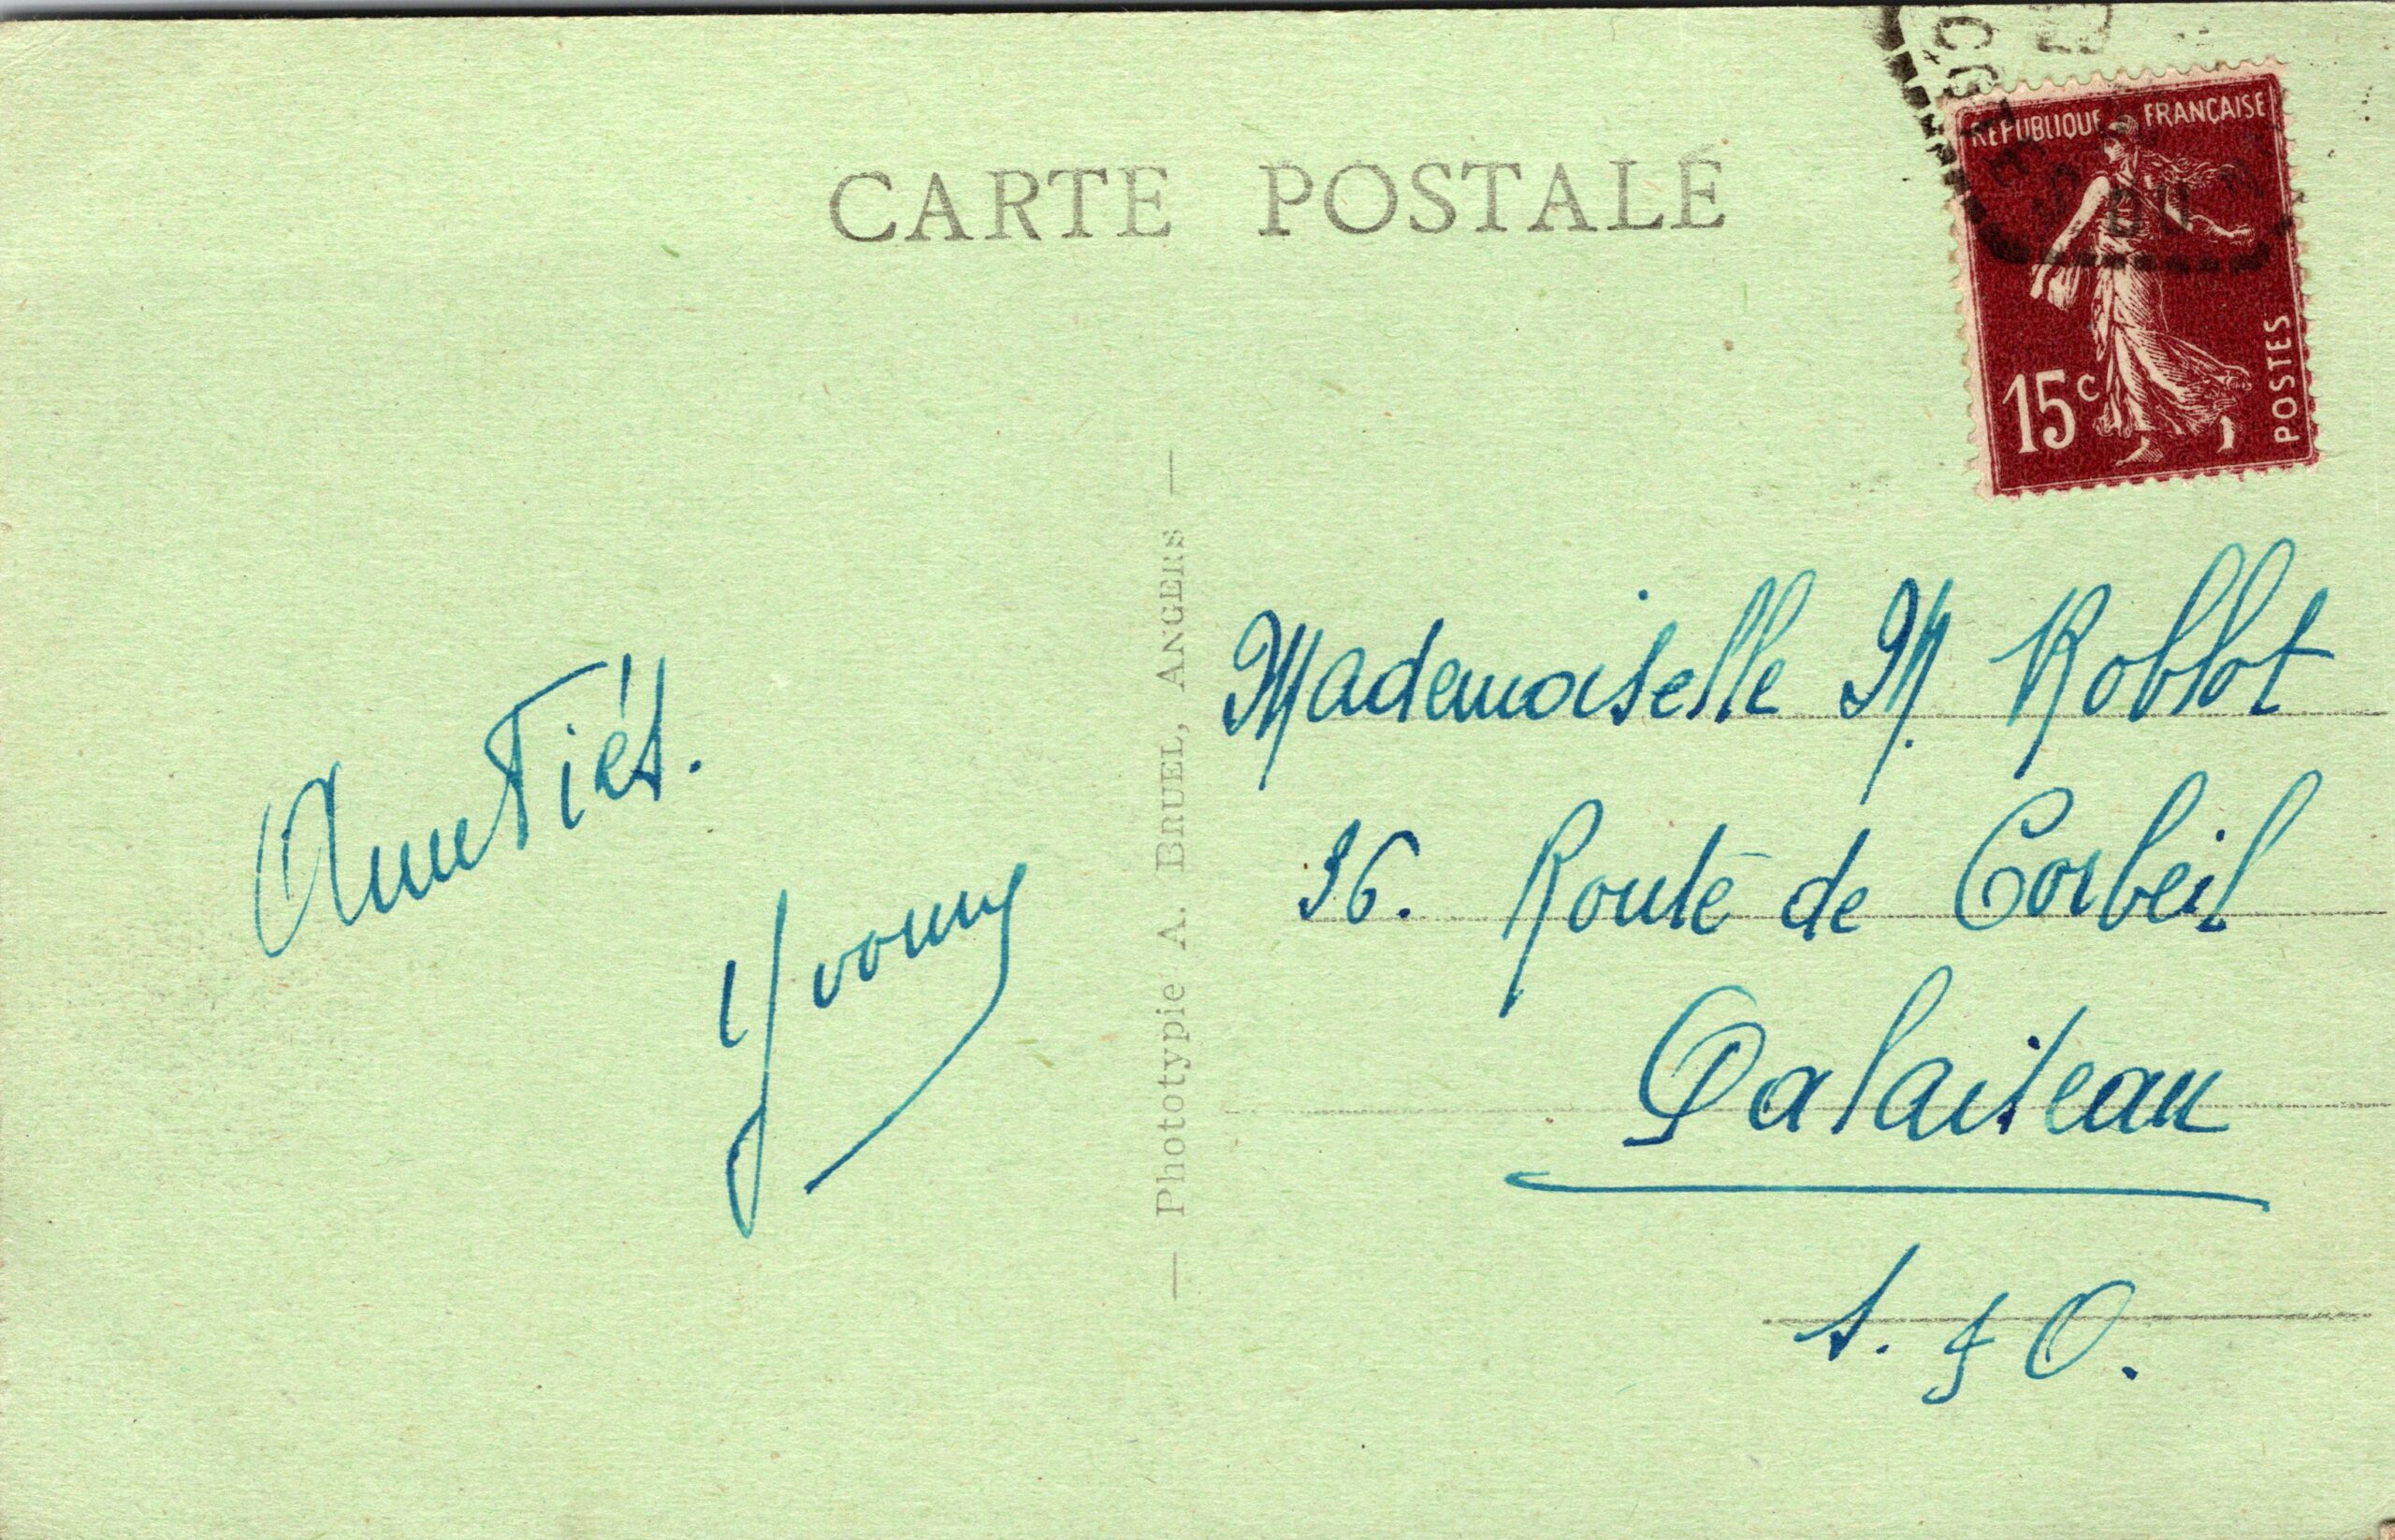 CARTE POSTALE
RÉPUBLIQUE FRANÇAISE
15c
POSTES
Amitiés.
Yvonne
— Phototypie A. BRUEL, ANGERS —
Mademoiselle M. Roblot
36. Route de Corbeil
Palaiseau
S. & O.